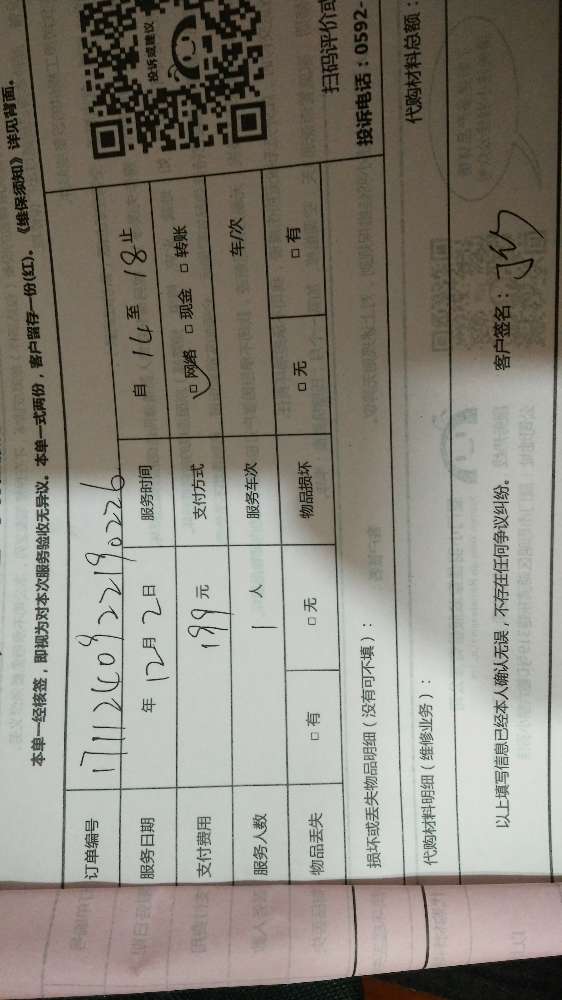 本单一经核签，即视为对本次服务验收无异议。本单一式两份，客户留存一份(红)。《维保须知》详见背面。
订单编号 1711240922190226
投诉或建议
服务日期 年 12 月 2 日 服务时间 自 14 至 18 止
支付费用 199 元 支付方式 □ 网络 □ 现金 □ 转账
服务人数 1 人 服务车次 车/次
物品丢失 □ 有 □ 无 物品损坏 □ 无 □ 有
扫码评价或
损坏或丢失物品明细（没有可不填）：
投诉电话：0592-
代购材料明细（维修业务）：
代购材料总额：
以上填写信息已经本人确认无误，不存在任何争议纠纷。
客户签名：